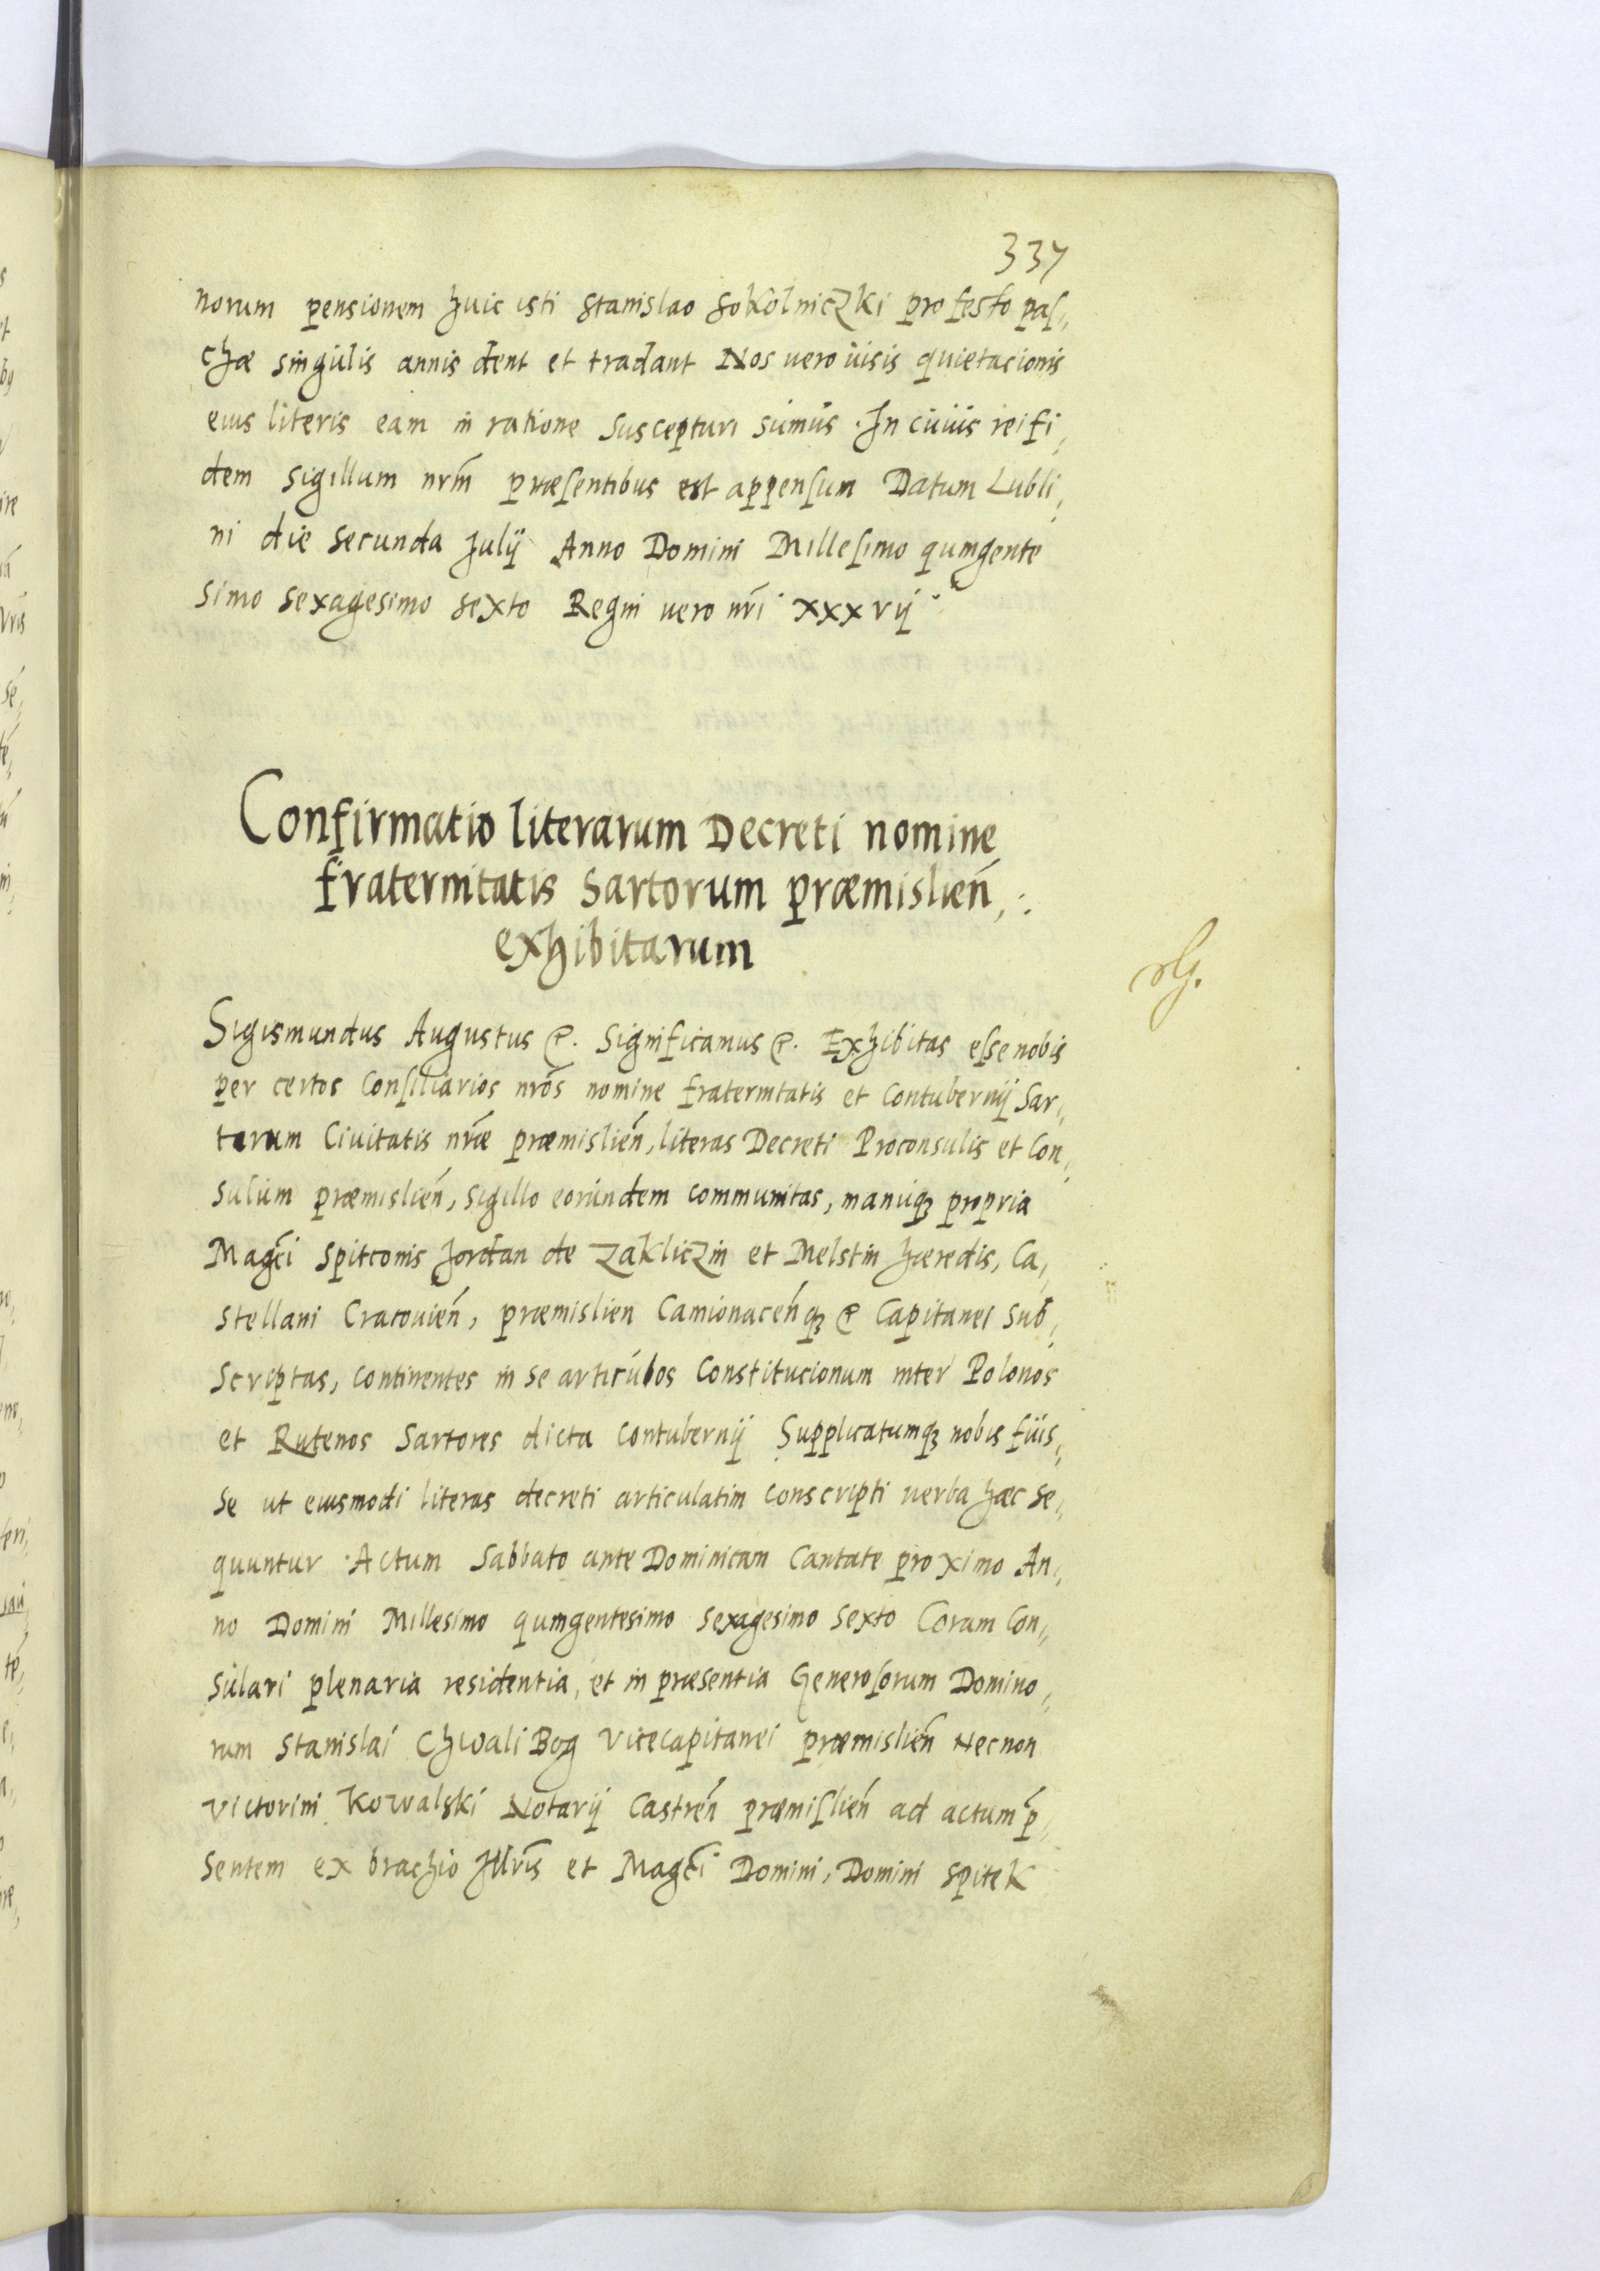 337
norum pensionem huic isti Stanislao Sokolniczki pro festo paſ,,
chæ singulis annis dent et tradant Nos vero uisis quietacionis
eius literis eam in ratione suscepturi sumus. In cuius rei fi,,
dem sigillum nr̃m præſentibus est appenſum Datum Lubli,,
ni die secunda Julij Anno Domini Milleſimo quingente
simo sexagesimo sexto Regni uero nr̃i xxxvij
Confirmatio literarum Decreti nomine
fraternitatis Sartorum præmislien̄,
exhibitarum
Sigismundus Augustus &. Significamus &. Exhibitas eſse nobis
per certos Conſiliarios nr̃os nomine fraternitatis et Contubernij Sar,,
torum Ciuitatis nr̃æ præmislien̄, literas Decreti Proconsulis et Con,,
sulum præmislien̄, sigillo eorundem communitas, manuqꝫ propria
Magc̃i Spitconis Jordan de Zakliczin et Melstin hæredis, Ca,,
stellani Cracouien̄, præmislien Camionacen̄qꝫ & Capitanei sub,,
scriptas, continentes in se articulos Constitucionum inter Polonos
et Rutenos Sartores dicta Contubernij Supplicatumqꝫ nobis fuis,,
se ut eiusmodi literas decreti articulatim conscripti uerba hæc se,,
quuntur. Actum Sabbato ante Dominicam Cantate proximo An,,
no Domini Millesimo quingentesimo sexagesimo sexto Coram Con,,
sulari plenaria residentia, et in præsentia Generoſorum Domino,,
rum Stanislai Chwalibog Vicecapitanei præmislien̄ Necnon
Victorini Kowalski Notarij Castren̄ præmiſlien̄ ad actum p̄,,
sentem ex brachio Illr̃is et Magc̃i Domini, Domini Spitek